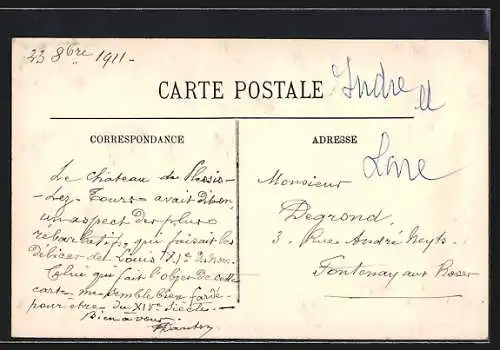 23 8bre 1911 -
CARTE POSTALE
Indre
et
Loire
CORRESPONDANCE
ADRESSE
Le château de Plessis-
-Lez-Tours avait dit-on,
un aspect des plus
rébarbatifs, qui faisait les
délices de Louis XI e du nom.
Celui qui fait l'objet de cette
carte me semble bien
pour être du XIVe siècle -
Bien à vous.
Monsieur
Degrond,
3, Rue André
Fontenay aux Roses